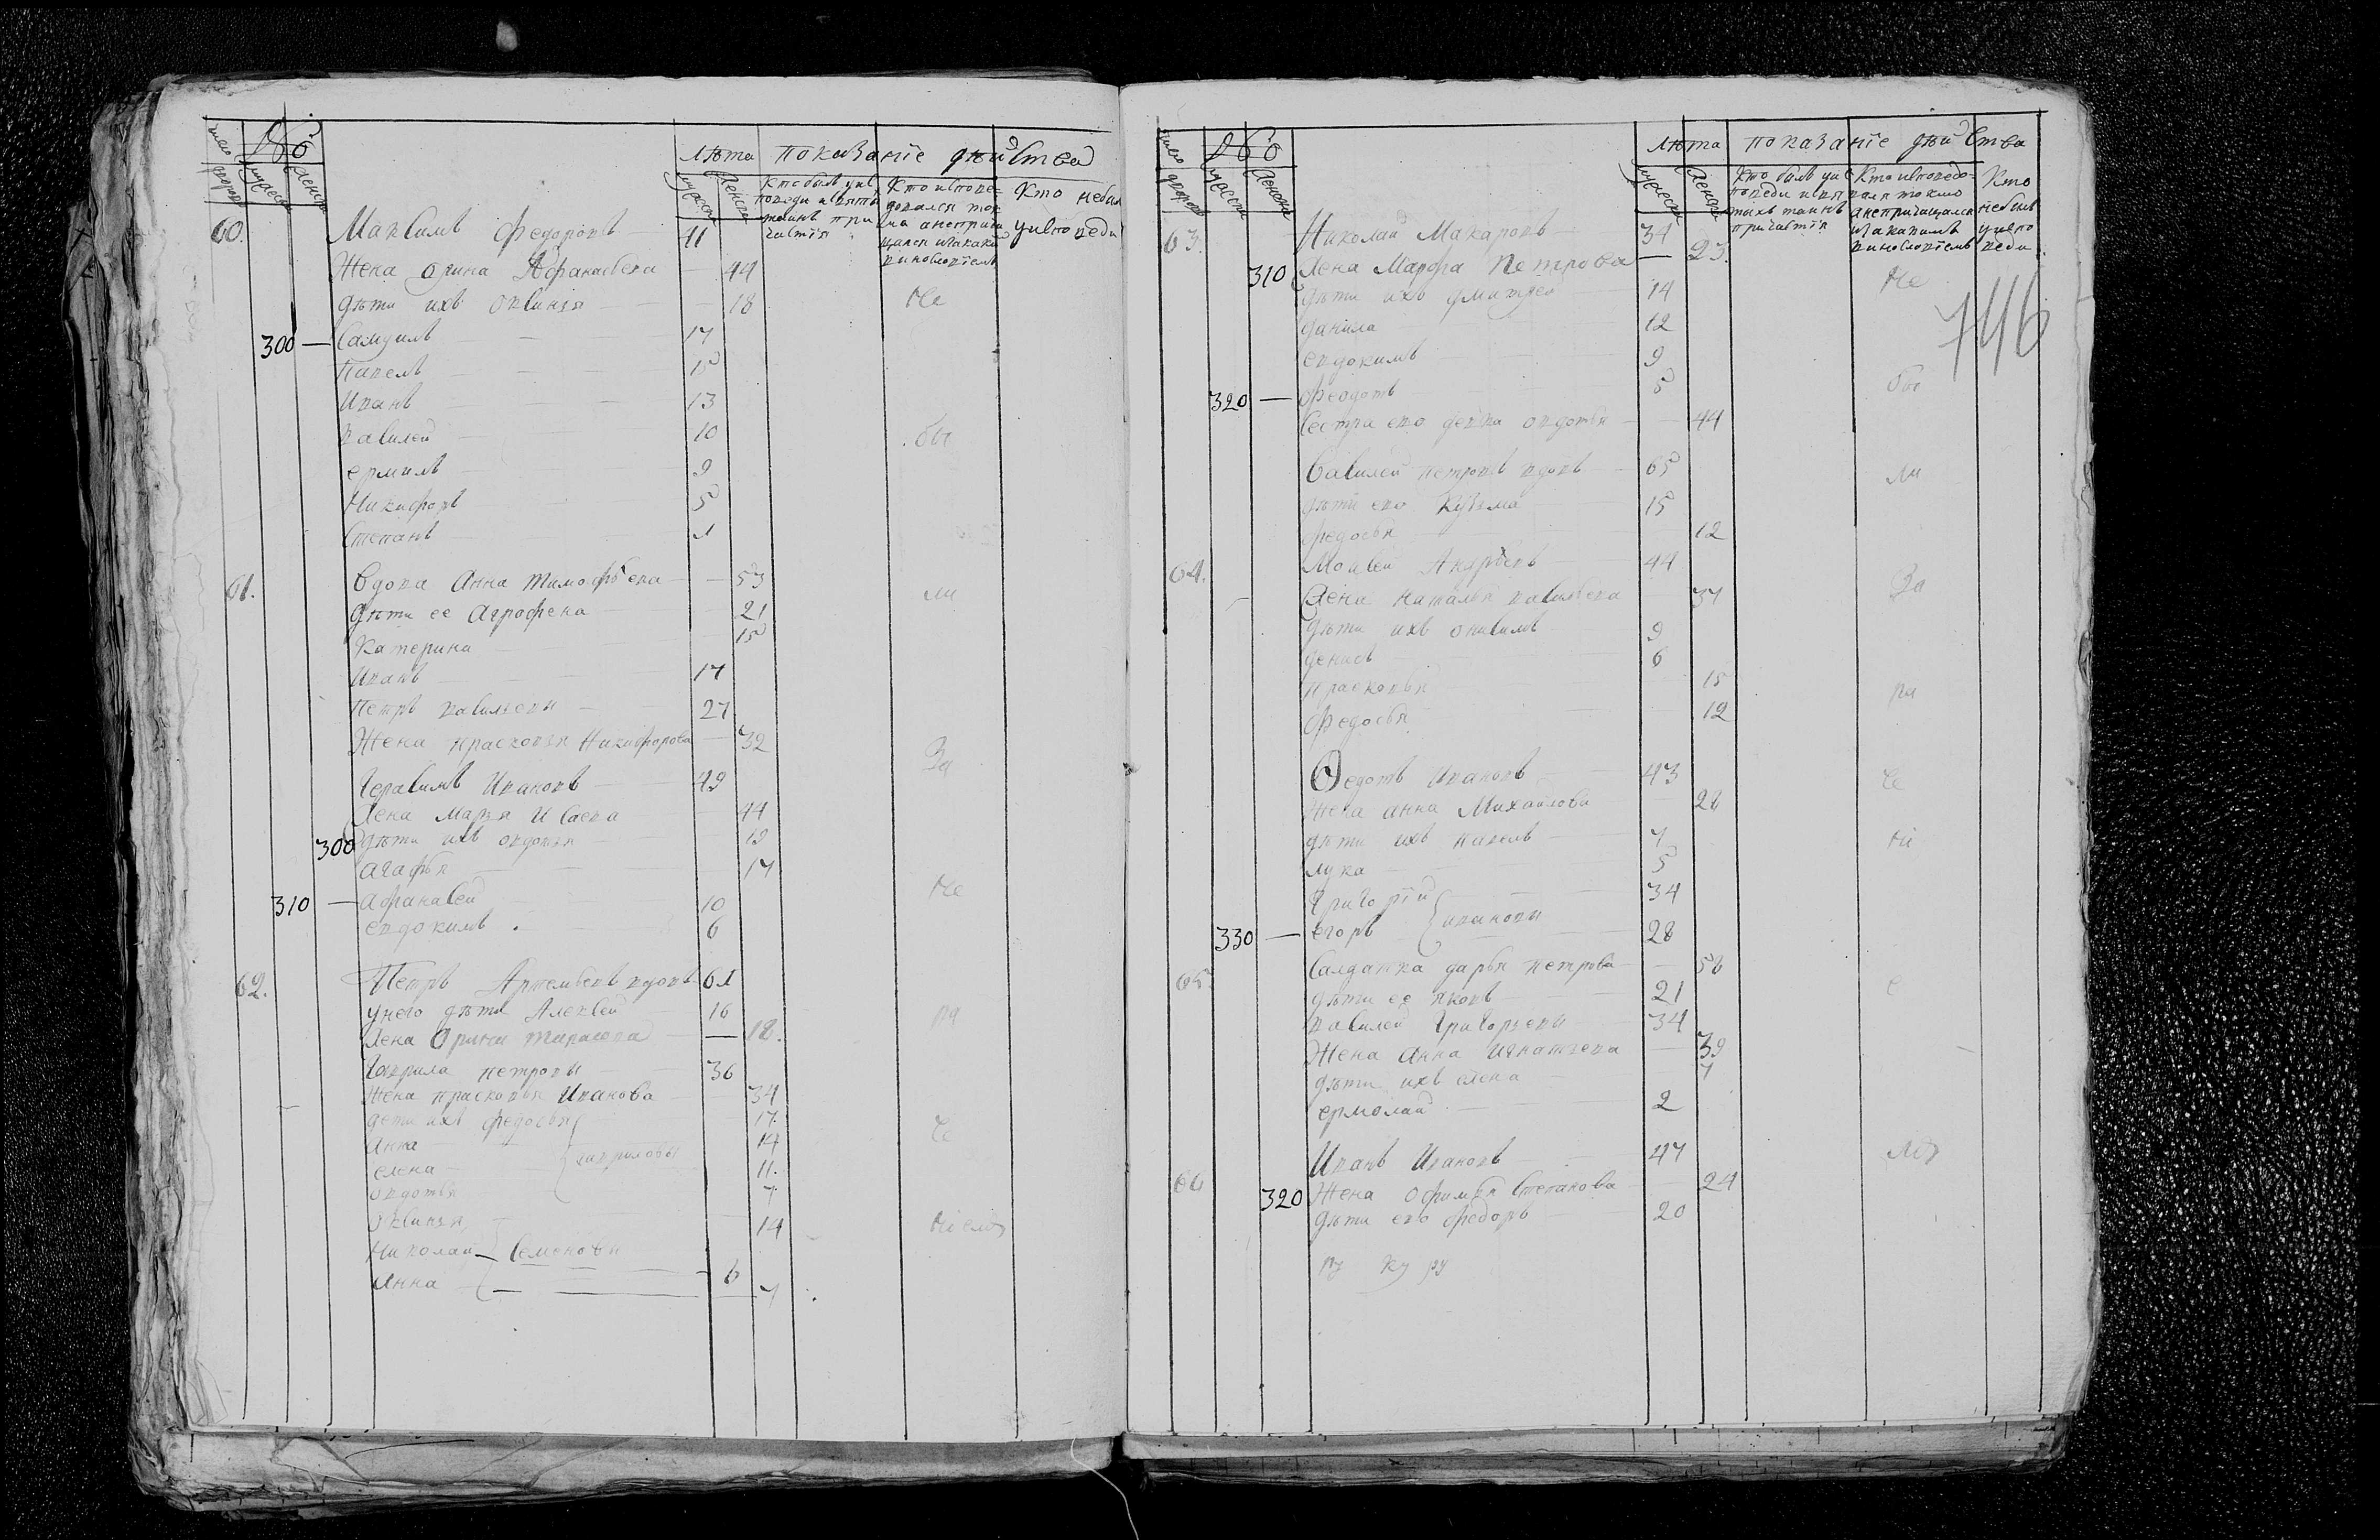 число дворовъ
людеи
мужеска
женска
лѣта показанїе дѣиства
мужеска
женска
кто былъ у исповеди и святыхъ таинъ причастїя
кто исповедовался токмо а не причащался и за какимъ винословїемъ
кто не былъ у исповеди
60. Максимъ Федоровъ 41
Жена орина Афанасьева 44
дѣти ихъ оксинья 18 Не
300 — Самуилъ 17
Павелъ 15
Иванъ 13
василей 10 бы
ермилъ 9
Никифоръ 5
Степанъ 1
61. Вдова Анна тимофѣева 53 ли
дѣти ее Агрофена 21
Катерина 15
Иванъ 17
Петръ васильевъ 27
Жена прасковья Никифорова 32 За
Герасимъ Ивановъ 49
Жена Марья Исаева 44
300 дѣти ихъ овдотья 19
агафья 17
310 — афанасей 10 Не
евдокимъ 6
62. Петръ Артемьевъ вдовъ 61
у него дѣти Алексей 16 ра
Жена Орина тарасова — 18.
Гаврила петровъ 36
Жена прасковья Иванова 34
дети ихъ федосья 17.
Анна 14 че
елена гавриловы 11.
овдотья 7
Оксинья 14 нїемъ
Николай Семеновы 6
Анна 7
число дворовъ
людеи
мужеска
женска
лѣта показанїе дѣиства
мужеска
женска
Кто былъ у исповеди и святыхъ таинъ причастїя
Кто исповедовался токмо а не причащался и за какимъ винословїемъ
Кто не былъ у исповеди
63. Николаи Макаровъ 34
310 Жена Марфа Петрова — 23.
дѣти ихъ дмитрей 14 Не
746
данила 12
евдокимъ 9
320 — Феодотъ 5 бы
Сестра ево девка овдотья 44
Василей петровъ вдовъ 65 ли
дѣти ево Кузьма 15
федосья 12
64. Моисей 44
Жена наталья васильева 37 За
дѣти ихъ онисимъ 9
денисъ 6
прасковья 15 ра
федосья 12
Федотъ Ивановъ 43 че
жена анна Михайлова 28
дѣти ихъ павелъ 7 нї
лука 5
Григорїй 34
330 — егоръ ивановы 28
65. Салдатка дарья петрова 56
дѣти ее яковъ 21 е
василей Григорьевъ 34
Жена анна игнатьева 39
дѣти ихъ елена 7
ермолай 2
66 Иванъ Ивановъ 47 мъ
320 Жена офимья Степанова 24
дѣти ево федоръ 20